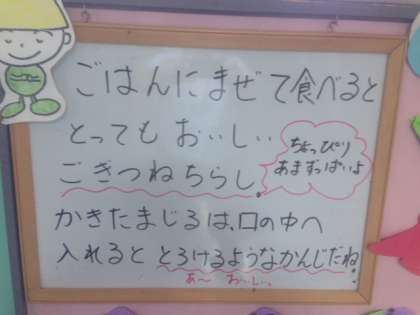 ごはんにまぜて食べると
とっても おいしい
ちょっぴり
あまずっぱいよ
ごぎつねちらし。
かきたまじるは、口の中へ
入れると とろけるようなかんじだね。
あ〜 おいしい。